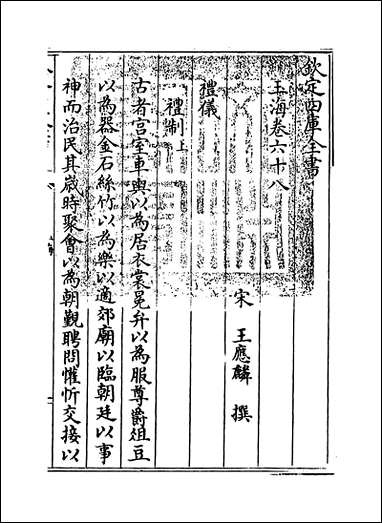 欽定四庫全書
玉海卷六十八
宋 王應麟 撰
禮儀
禮制上
古者宫室車輿以為居衣裳冕弁以為服尊爵俎豆
以為器金石絲竹以為樂以適郊廟以臨朝廷以事
神而治民其嵗時聚會以為朝覲聘問懽忻交接以